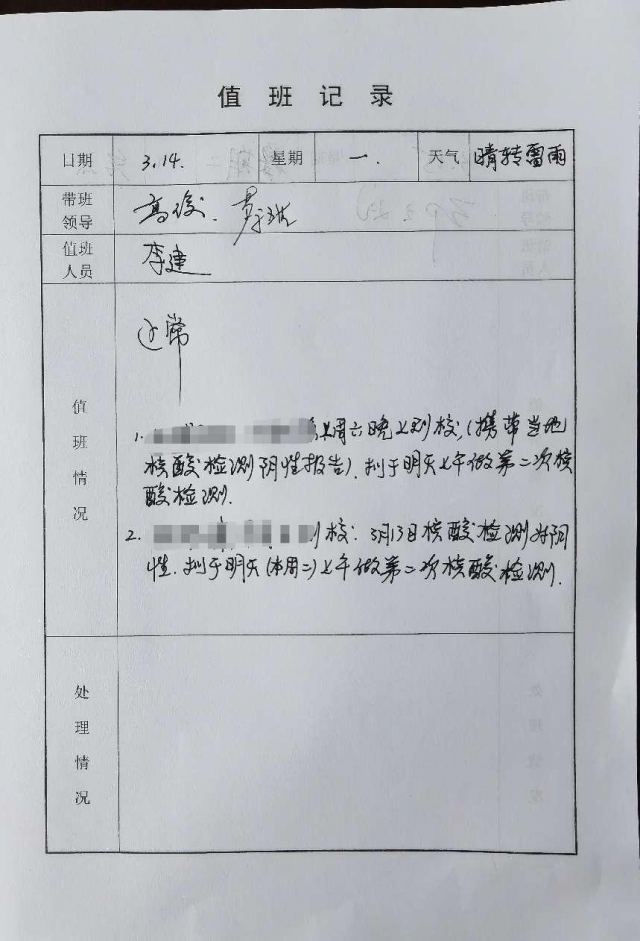 值班记录
日期 3.14. 星期 一. 天气 晴转雷雨
带班领导 高俊.
值班人员 李建
值班情况
正常
1. 上周六晚上到校,(携带当地
核酸检测阴性报告).拟于明天上午做第二次核
酸检测.
2. 到校:3月13日核酸检测为阴
性.拟于明天(本周二)上午做第二次核酸检测.
处理情况